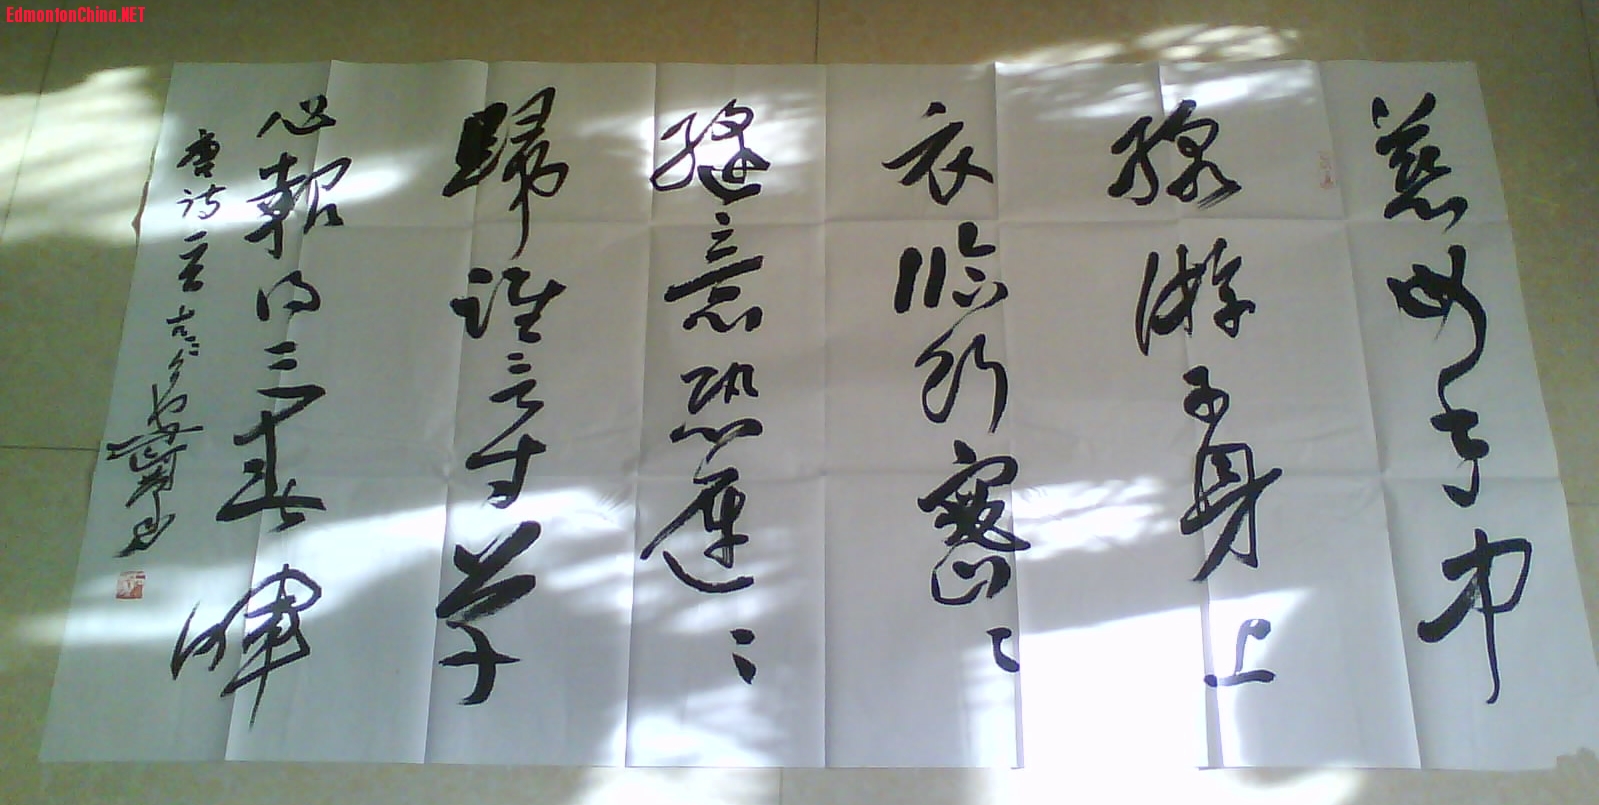 EdmontonChina.NET
慈母手中
線游子身上
衣临行密々
縫意恐遲々
歸誰言寸草
心報得三春暉
唐诗一首